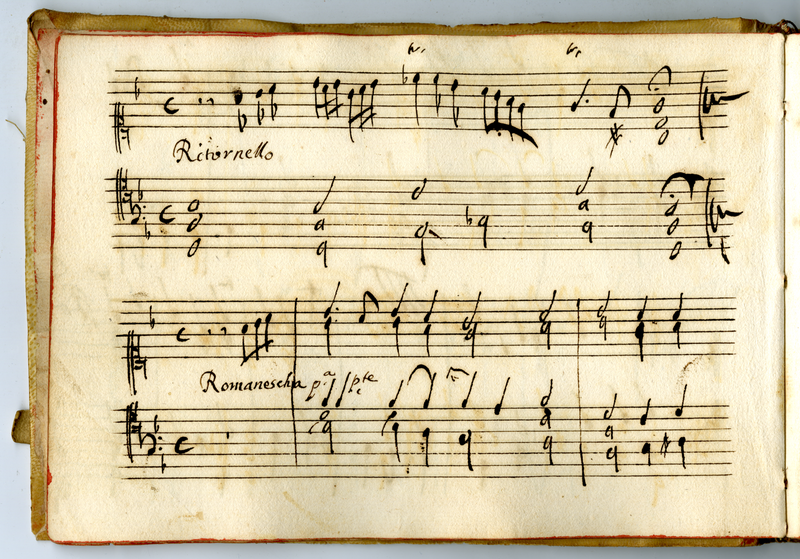 tr. tr.
Ritornello
Romanescha pª pte